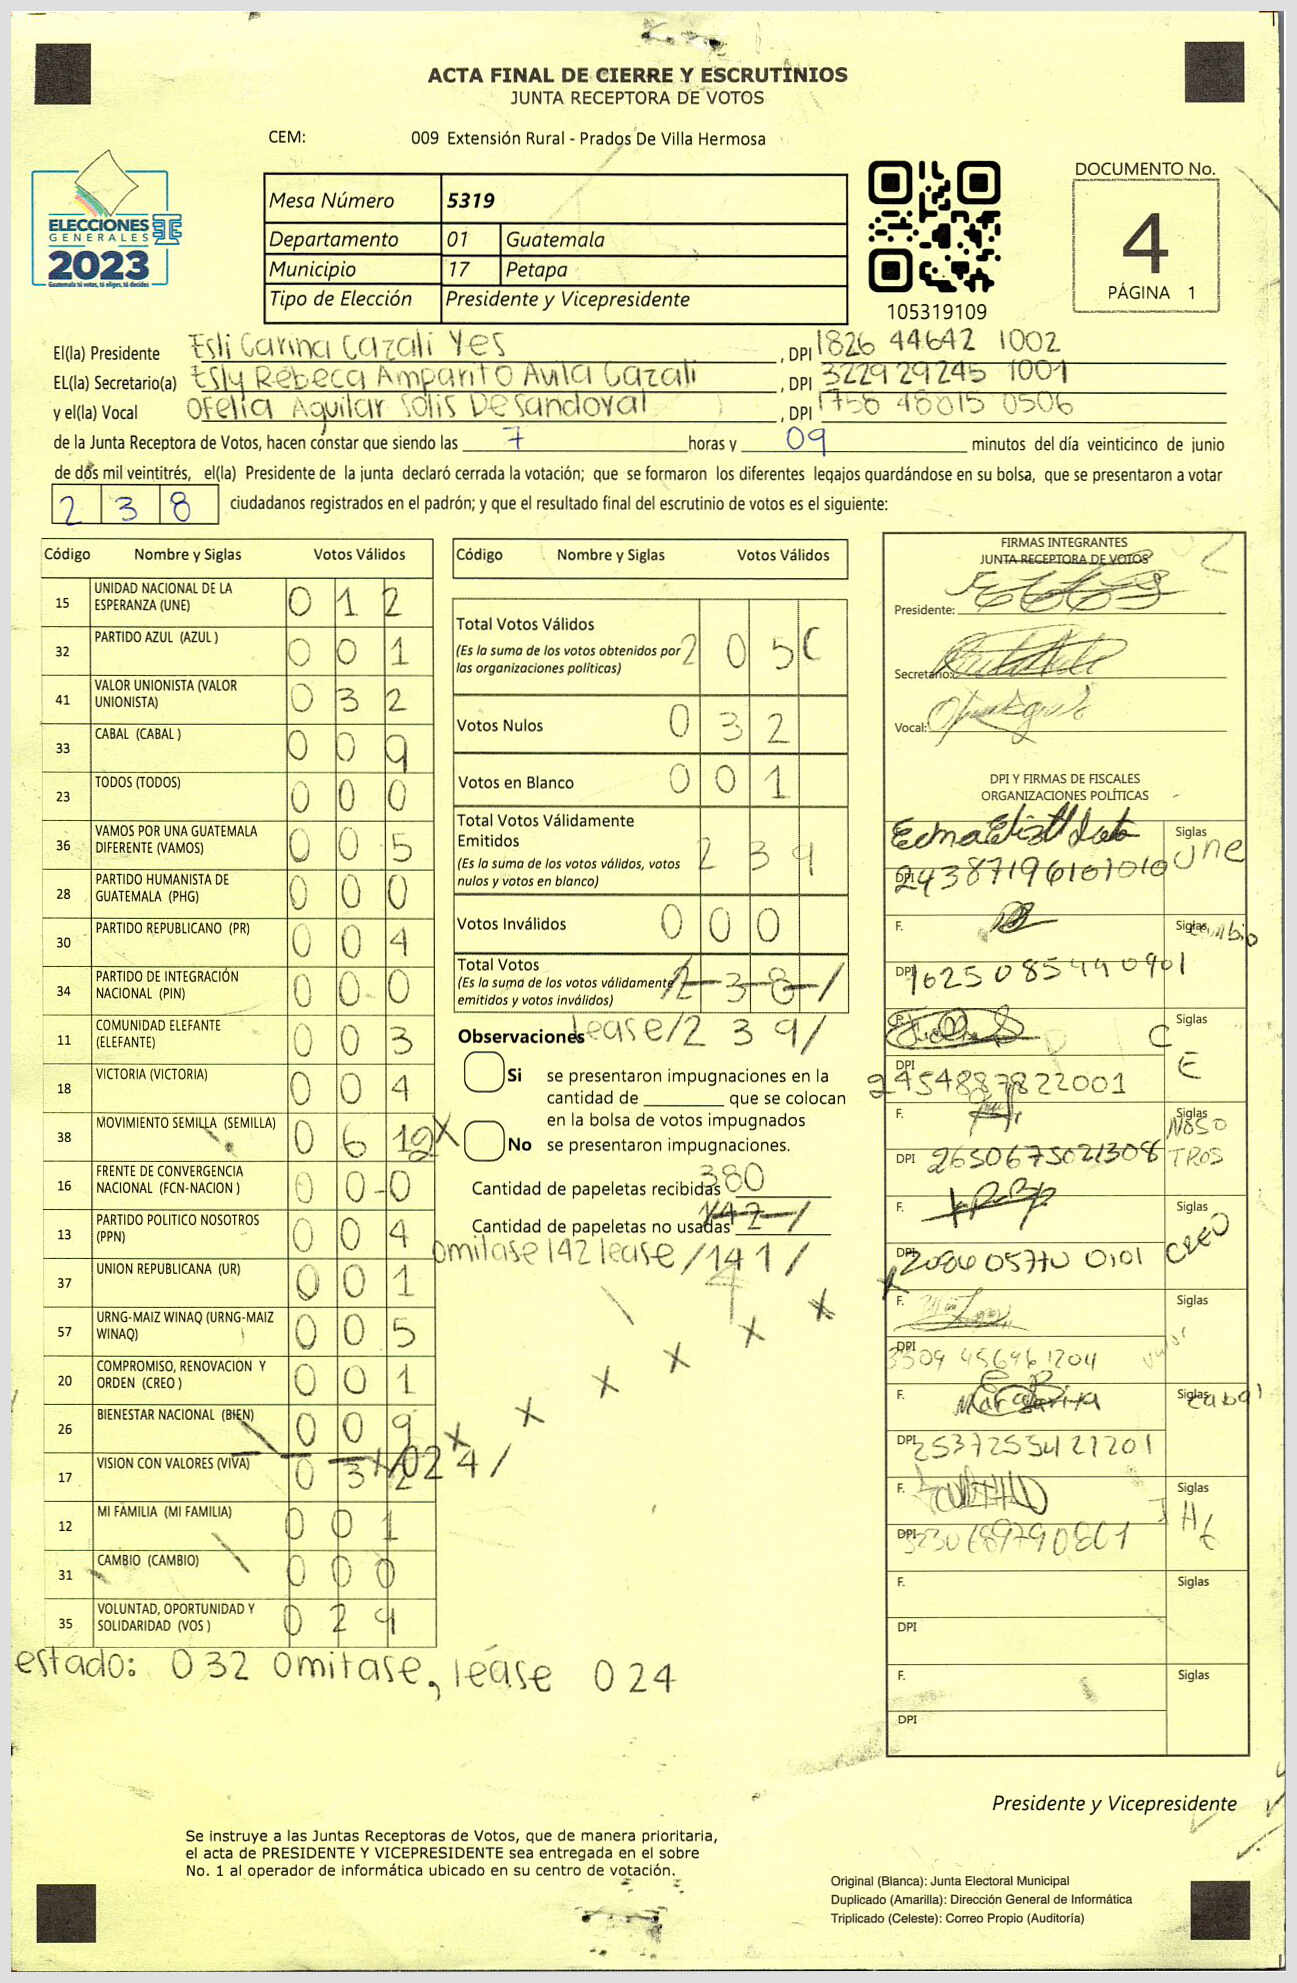 ACTA FINAL DE CIERRE Y ESCRUTINIOS
JUNTA RECEPTORA DE VOTOS
CEM: 009 Extensión Rural - Prados De Villa Hermosa
DOCUMENTO No.
4
PÁGINA 1
ELECCIONES
GENERALES
2023
Guatemala tú votas, tú eliges, tú decides
Mesa Número 5319
Departamento 01 Guatemala
Municipio 17 Petapa
Tipo de Elección Presidente y Vicepresidente
105319109
El(la) Presidente Esli Carina Cazali Yes, DPI 1826 44642 1002
EL(la) Secretario(a) Esly Rebeca Amparito Avila Cazali, DPI 3229 29245 1001
y el(la) Vocal Ofelia Aguilar Solis De Sandoval, DPI 1758 48015 0506
de la Junta Receptora de Votos, hacen constar que siendo las 7 horas y 09 minutos del día veinticinco de junio
de dos mil veintitrés, el(la) Presidente de la junta declaró cerrada la votación; que se formaron los diferentes legajos guardándose en su bolsa, que se presentaron a votar
238 ciudadanos registrados en el padrón; y que el resultado final del escrutinio de votos es el siguiente:
Código Nombre y Siglas Votos Válidos
15 UNIDAD NACIONAL DE LA ESPERANZA (UNE) 0 1 2
32 PARTIDO AZUL (AZUL ) 0 0 1
41 VALOR UNIONISTA (VALOR UNIONISTA) 0 3 2
33 CABAL (CABAL ) 0 0 9
23 TODOS (TODOS) 0 0 0
36 VAMOS POR UNA GUATEMALA DIFERENTE (VAMOS) 0 0 5
28 PARTIDO HUMANISTA DE GUATEMALA (PHG) 0 0 0
30 PARTIDO REPUBLICANO (PR) 0 0 4
34 PARTIDO DE INTEGRACIÓN NACIONAL (PIN) 0 0 0
11 COMUNIDAD ELEFANTE (ELEFANTE) 0 0 3
18 VICTORIA (VICTORIA) 0 0 4
38 MOVIMIENTO SEMILLA (SEMILLA) 0 6
16 FRENTE DE CONVERGENCIA NACIONAL (FCN-NACION ) 0 0 0
13 PARTIDO POLITICO NOSOTROS (PPN) 0 0 4
37 UNION REPUBLICANA (UR) 0 0 1
57 URNG-MAIZ WINAQ (URNG-MAIZ WINAQ) 0 0 5
20 COMPROMISO, RENOVACION Y ORDEN (CREO ) 0 0 1
26 BIENESTAR NACIONAL (BIEN) 0 0 9
17 VISION CON VALORES (VIVA) 0 3 2 /024/
12 MI FAMILIA (MI FAMILIA) 0 0 1
31 CAMBIO (CAMBIO) 0 0 0
35 VOLUNTAD, OPORTUNIDAD Y SOLIDARIDAD (VOS ) 0 2 9
estado: 032 omitase, léase 024
Código Nombre y Siglas Votos Válidos
Total Votos Válidos 2 0 5
(Es la suma de los votos obtenidos por las organizaciones políticas)
Votos Nulos 0 3 2
Votos en Blanco 0 0 1
Total Votos Válidamente Emitidos 2 3 9
(Es la suma de los votos válidos, votos nulos y votos en blanco)
Votos Inválidos 0 0 0
Total Votos /2-3-8-/
(Es la suma de los votos válidamente emitidos y votos inválidos)
Observaciones lease/2 3 9/
Si se presentaron impugnaciones en la
cantidad de que se colocan
en la bolsa de votos impugnados
No se presentaron impugnaciones.
Cantidad de papeletas recibidas 380
Cantidad de papeletas no usadas 142-/
omitase 142 lease /141/
FIRMAS INTEGRANTES
JUNTA RECEPTORA DE VOTOS
Presidente:
Secretario:
Vocal:
DPI Y FIRMAS DE FISCALES
ORGANIZACIONES POLÍTICAS
Siglas une
DPI 2438719610101
F. Siglas cambio
DPI 1625085440901
F. Siglas C E
DPI 2454887822001
F. Siglas N8SOTROS
DPI 2650675021308
F. Siglas CREO
DPI 2086 05770 0101
F. Siglas
DPI 3509 456961204
F. Margarita Siglas cabal
DPI 2537255421201
F. Siglas
DPI
F. Siglas
DPI
F. Siglas
DPI
Presidente y Vicepresidente
Se instruye a las Juntas Receptoras de Votos, que de manera prioritaria,
el acta de PRESIDENTE Y VICEPRESIDENTE sea entregada en el sobre
No. 1 al operador de informática ubicado en su centro de votación.
Original (Blanca): Junta Electoral Municipal
Duplicado (Amarilla): Dirección General de Informática
Triplicado (Celeste): Correo Propio (Auditoría)